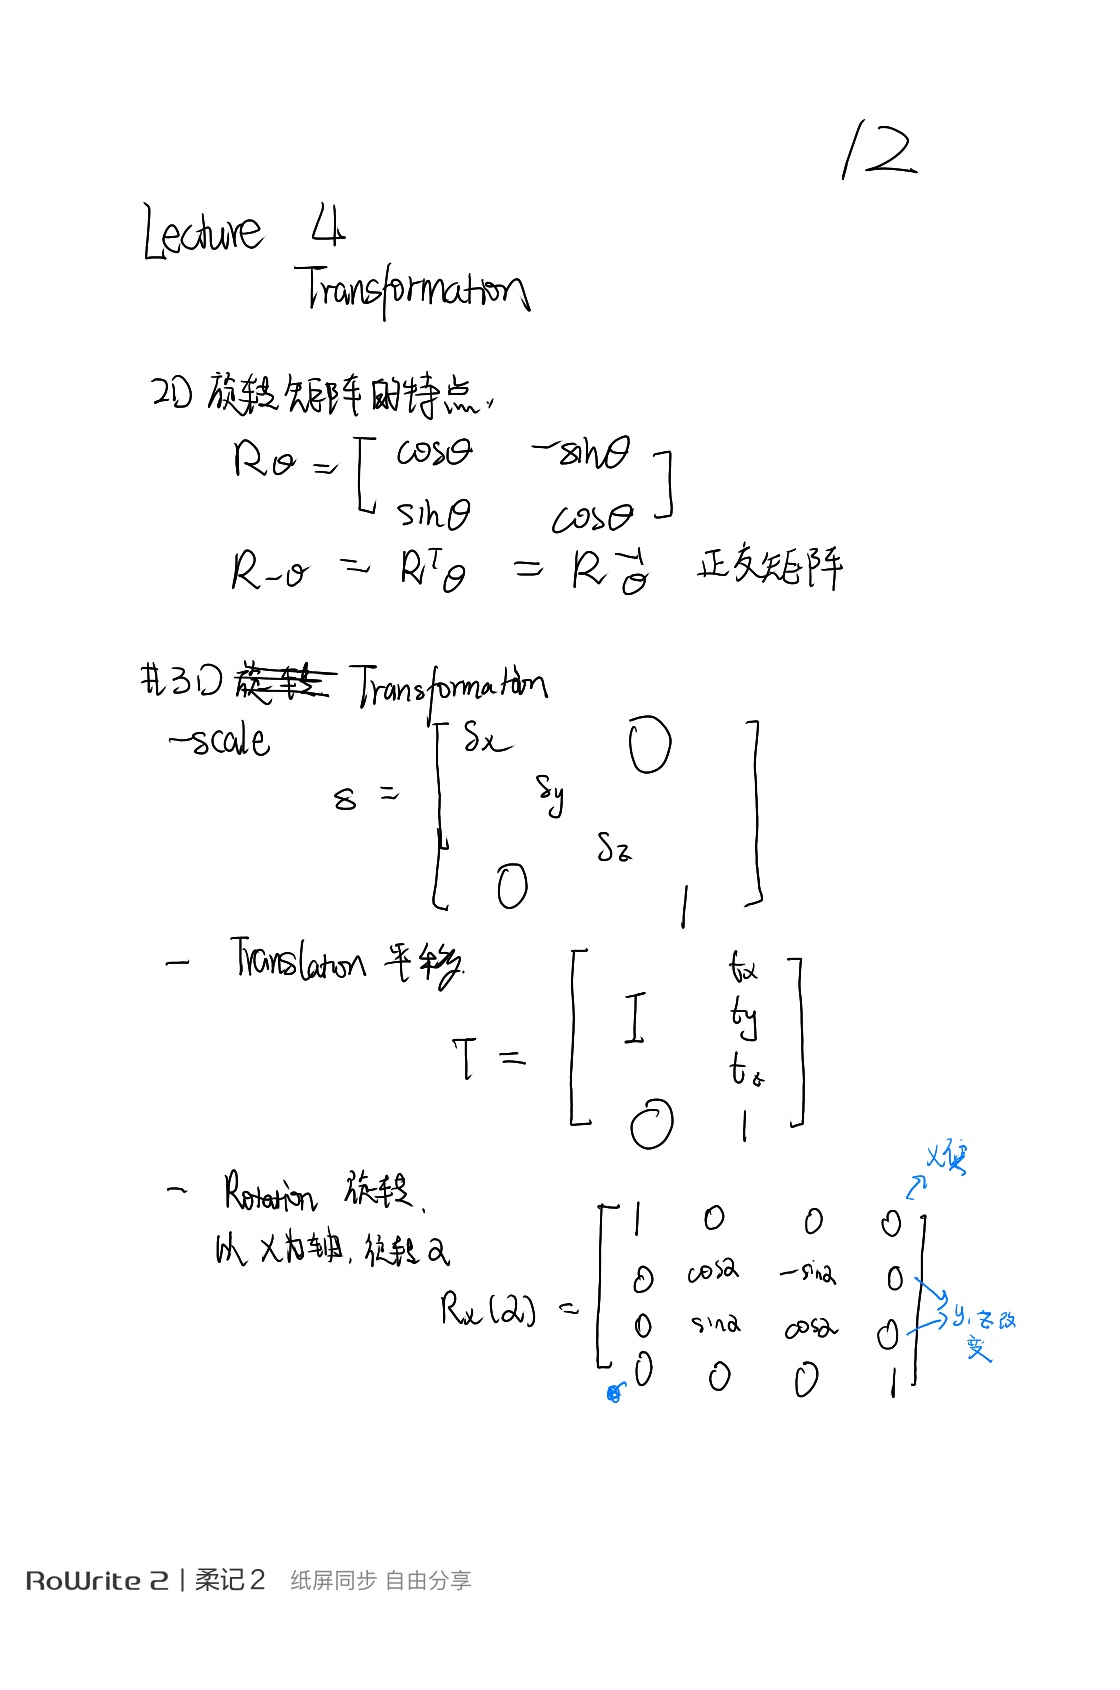 12
Lecture 4
Transformation
2D 旋转矩阵的特点.
Rθ = [ cosθ -sinθ
sinθ cosθ ]
R-θ = Rᵀθ = R⁻¹θ 正交矩阵
#3D 旋转 Transformation
-scale
s = [ Sx 0
Sy
Sz
0 1 ]
- Translation 平移.
T = [ I tx
ty
tz
0 1 ]
x
- Rotation 旋转.
以 X为轴, 旋转 α
Rx(α) = [ 1 0 0 0
0 cosα -sinα 0
0 sinα cosα 0
0 0 0 1 ]
y, z 改
变
RoWrite 2 | 柔记 2 纸屏同步 自由分享